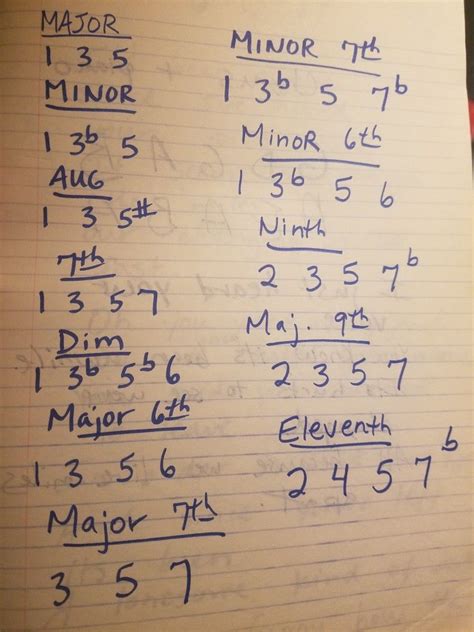 MAJOR
1 3 5
MINOR
1 3b 5
AUG
1 3 5#
7th
1 3 5 7
Dim
1 3b 5b 6
Major 6th
1 3 5 6
Major 7th
3 5 7
MINOR 7th
1 3b 5 7b
Minor 6th
1 3b 5 6
Ninth
2 3 5 7b
Maj. 9th
2 3 5 7
Eleventh
2 4 5 7b